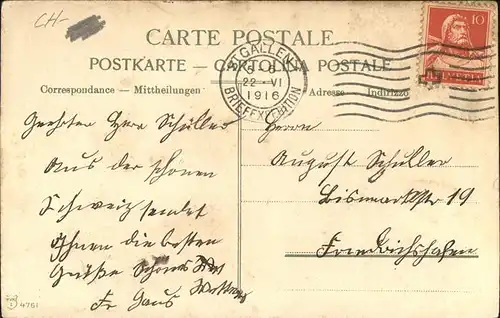 CH-
CARTE POSTALE.
POSTKARTE — CARTOLINA POSTALE
Correspondance — Mittheilungen
Adresse — Indirizzo
ST. GALLEN 1
22 VI
1916
BRIEFEXPEDITION
10
HELVETIA
Geehrter Herr Schüller
Aus der schönen
Schweiz sendet
Ihnen die besten
Grüße
Fr Gaus
4761
Herrn
August Schüller
Bismarkstr 19
Friedrichshafen